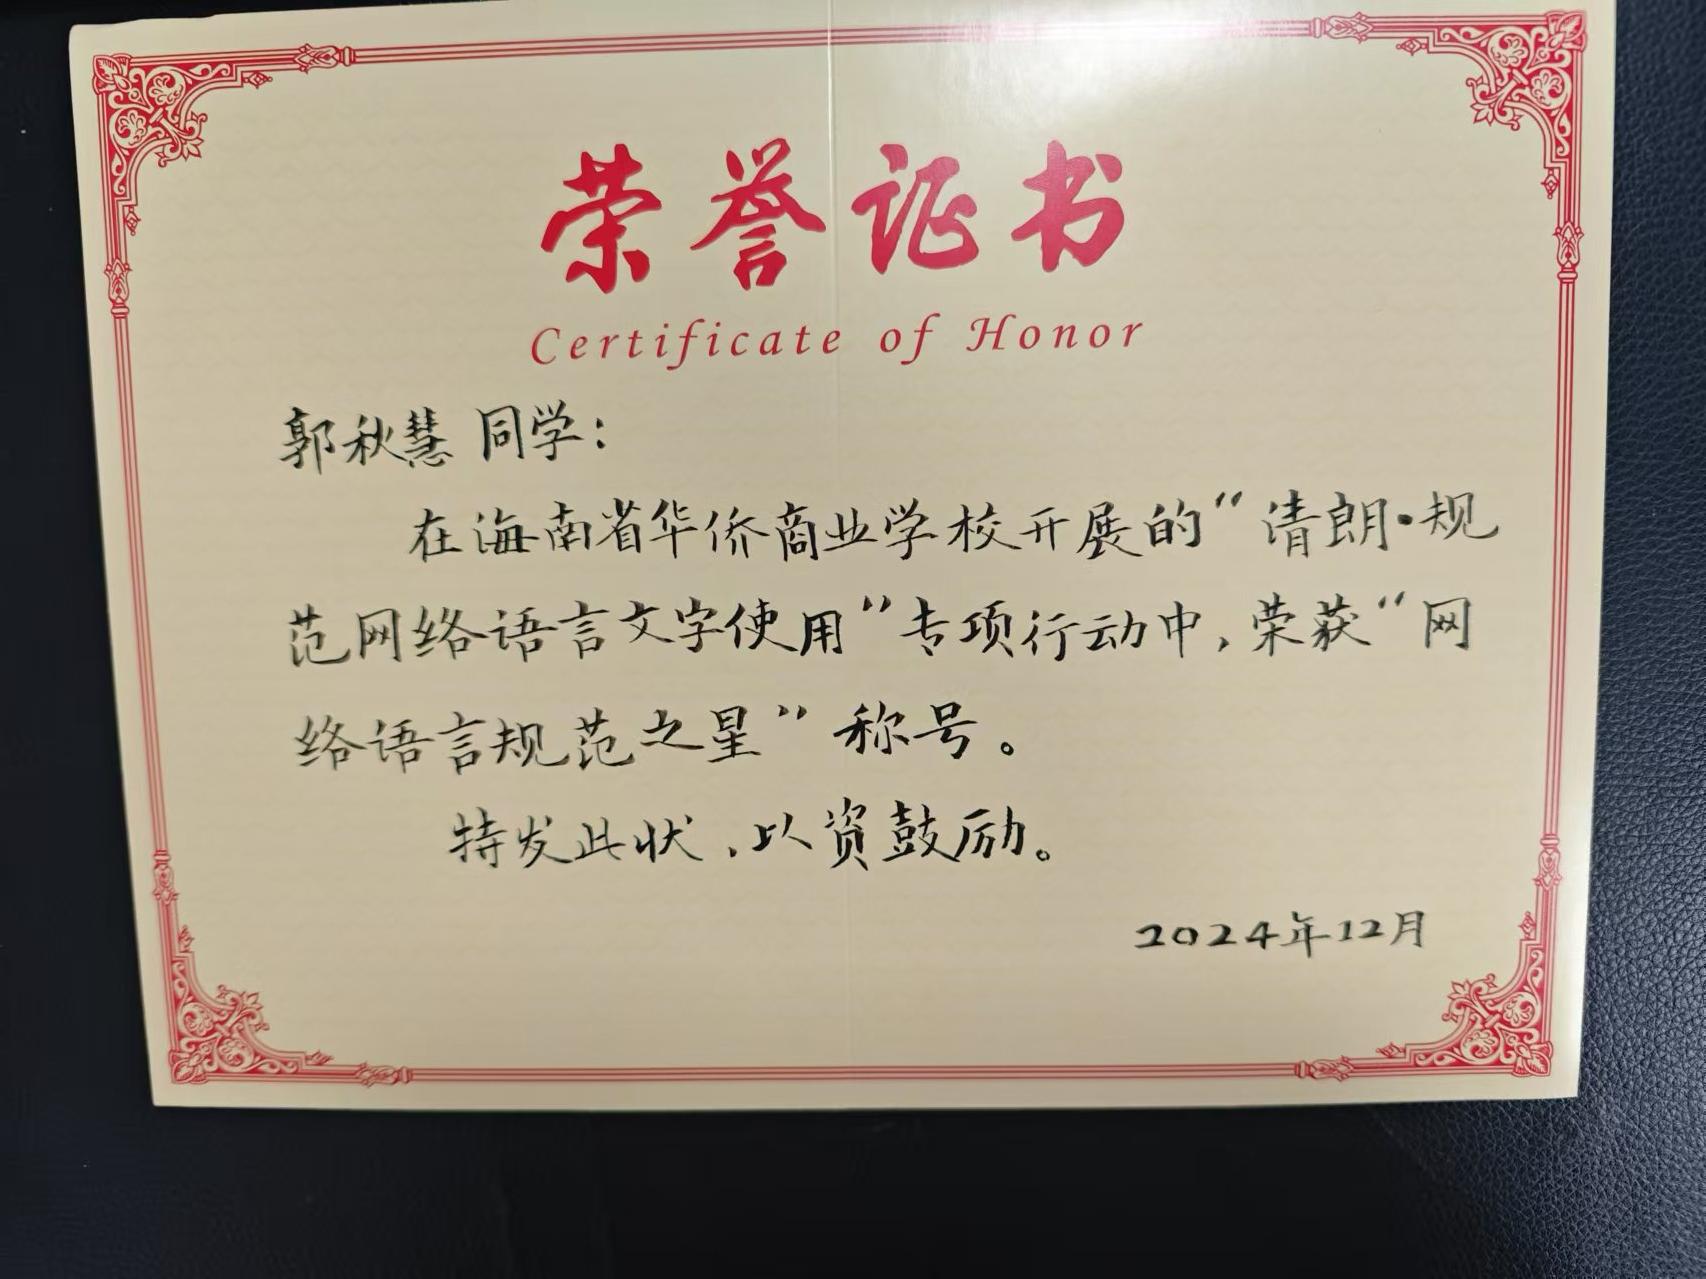 荣誉证书
Certificate of Honor
郭秋慧 同学：
在海南省华侨商业学校开展的“清朗·规
范网络语言文字使用”专项行动中，荣获“网
络语言规范之星”称号。
特发此状，以资鼓励。
2024年12月